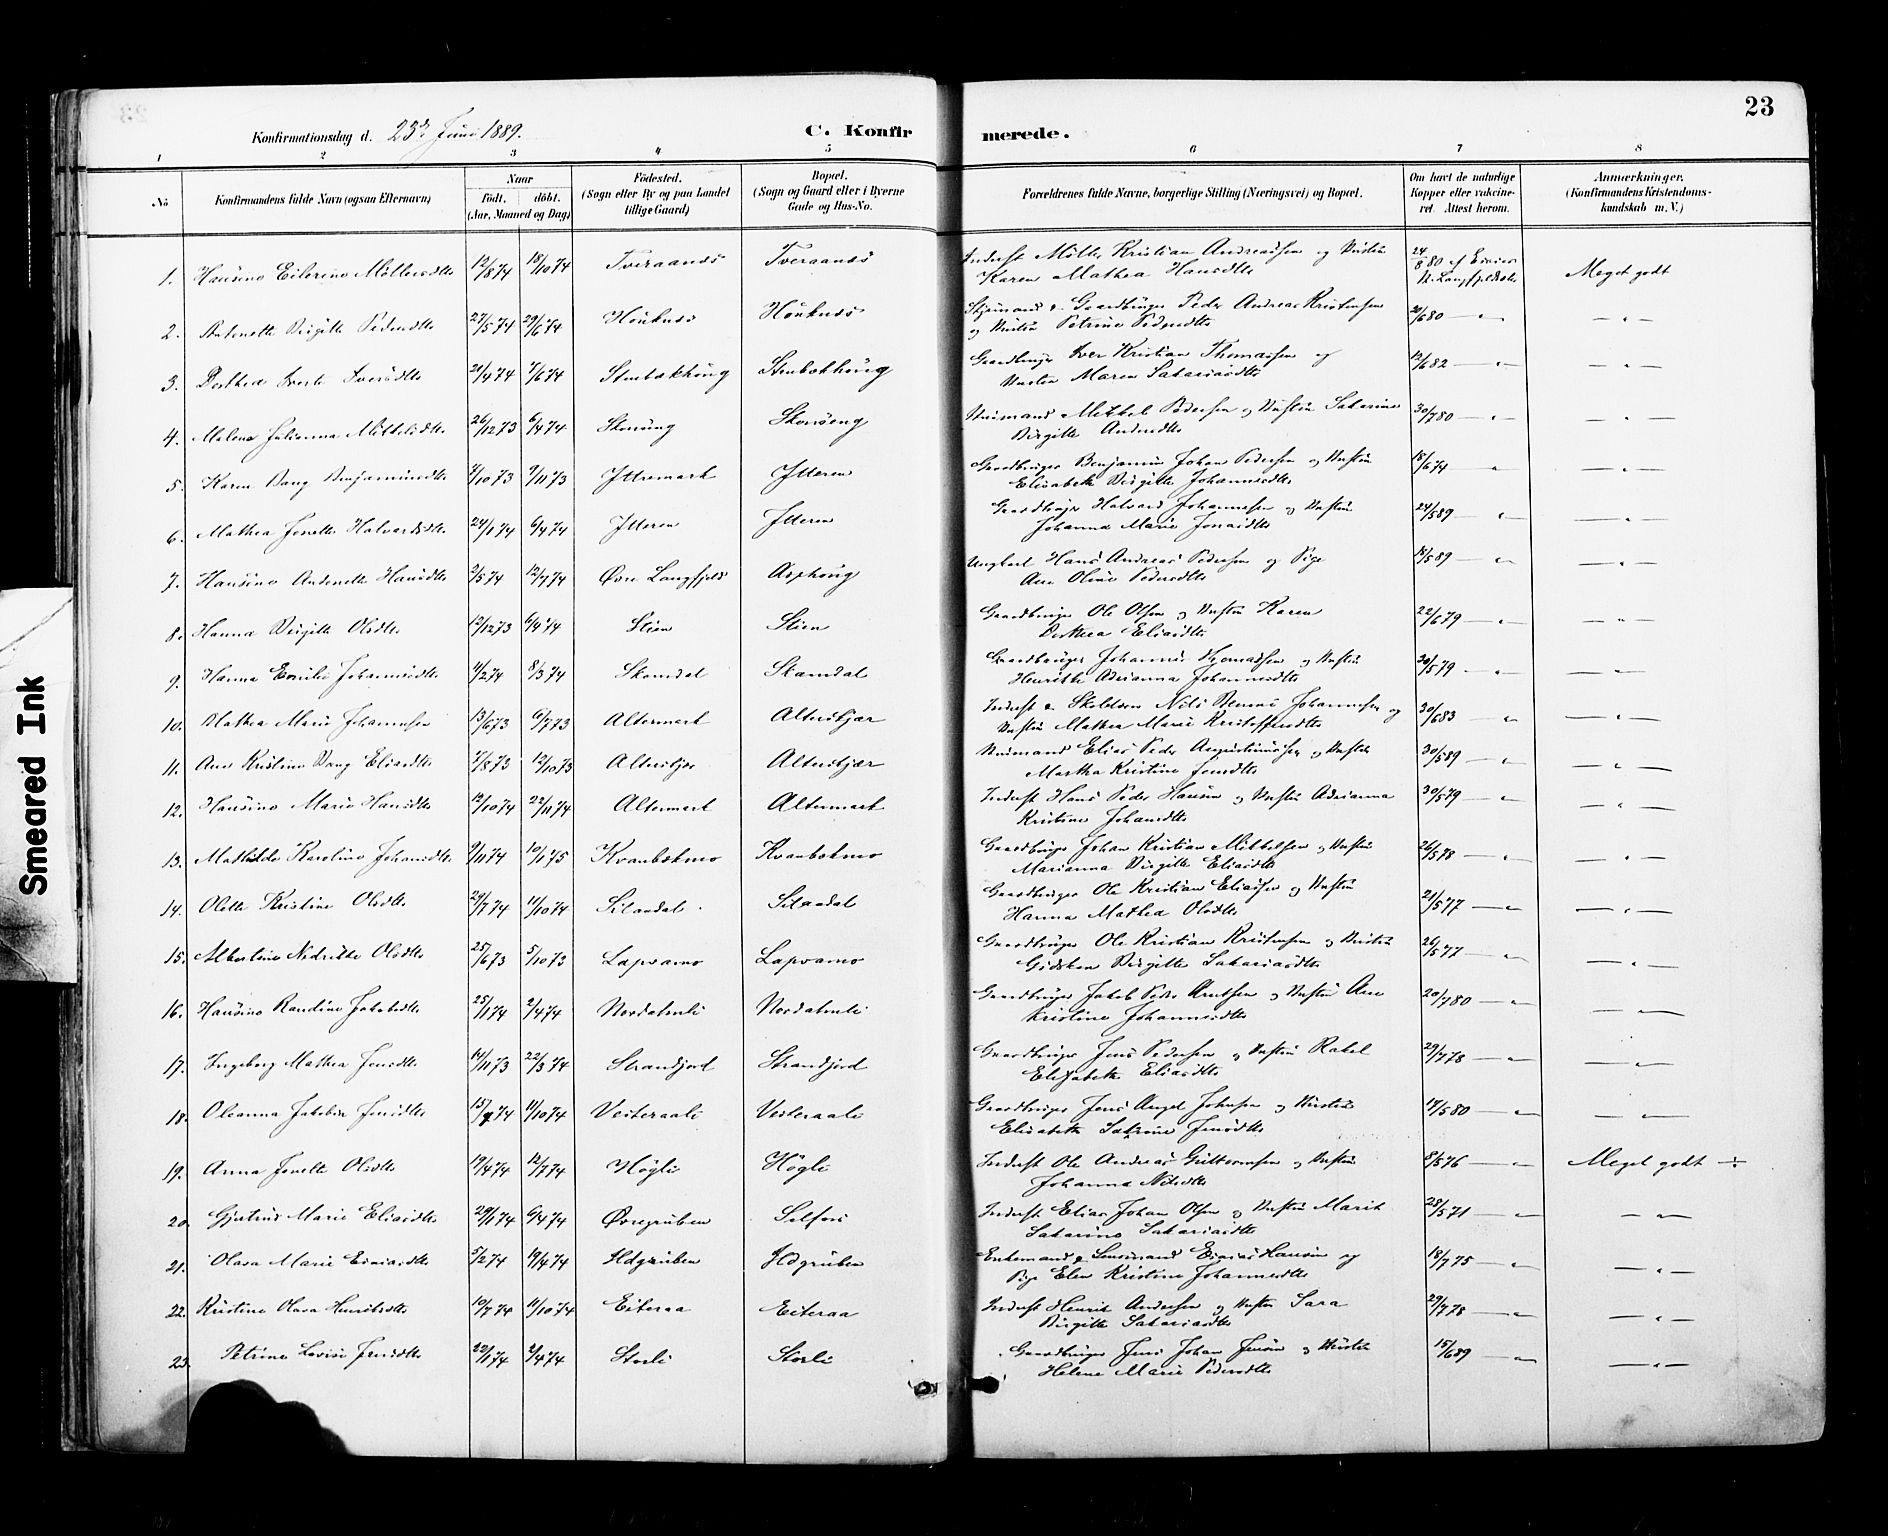 23
Konfirmationsdag d. 23de Juni 1889.
C. Konfirmerede.
1 2 3 4 5 6 7 8
No
Konfirmandens fulde Navn (ogsaa Efternavn)
Naar
Födt. döbt.
(Aar, Maaned og Dag)
Födested.
(Sogn eller By og paa Landet
tillige Gaard)
Bopæl.
(Sogn og Gaard eller i Byerne
Gade og Hus-No.
Forældrenes fulde Navne, borgerlige Stilling (Næringsvei) og Bopæl.
Om havt de naturlige
Kopper eller vakcine-
ret. Attest herom.
Anmærkninger.
(Konfirmandens Kristendoms-
kundskab m. V.)
1. Hansine Eilerine Möllersdtr 12/8 74 18/10 74 Tveraanes Tveraanes Inderst Möller Kristian Andreassen og Hustru
Karen Mathea Hansdtr 24/8 80 Meget godt
2. Antonette Birgitte Pedersdtr 27/5 74 29/6 74 Höuknes Höuknes Gaardbruger Peder Andreas Kristensen
og Hustru Petrine Pedersdtr /6 80 — " — " —
3. Dorthea Iversdtr 21/4 74 7/6 74 Stenbækhöug Stenbækhöug Gaardbruger Iver Kristian Thomassen og
Hustru Maren Sakariasdtr 12/6 82 — " — " —
4. Malene Julianna Mikkelsdtr 26/12 73 6/4 74 Skonseng Skonseng Husmand Mikkel Pedersen og Hustru Sakarine
Birgitte Andersdtr 30/7 80 — " — " —
5. Karen Dang Benjaminsdtr 7/10 73 9/11 73 Ytteren Gaardbruger Benjamin Johan Pedersen og Hustru
Elisabeth Birgitte Johannesdtr 18/6 74 — " — " —
6. Mathea Jonette Halvardsdtr 24/1 74 6/4 74 Ytteren Ytteren Halvard Johannesen og Hustru
Johanna Marie Jonasdtr 24/5 89 — " — " —
7. Hansine Andenette Hansdtr 2/5 74 12/7 74 Øvre Langfjeld Asphöug Ungkarl Hans Andreas Pedersen og Pige
Ane Oline Pedersdtr 18/5 89 — " — " —
8. Hanna Birgitte Olsdtr 12/12 73 6/4 74 Stien Stien Gaardbruger Ole Olsen og Hustru Karen
Dorthea Eliasdtr 22/6 79 — " — " —
9. Hanna Emilie Johannesdtr /2 74 8/3 74 Skamdal Skamdal Gaardbruger Johannes Thomassen og Hustru
Henrikke Adrianna Johannesdtr 30/5 79 — " — " —
10. Mathea Marie Johannesen 13/6 73 6/7 73 Altermark Alterskjær Inderst Nils Johannesen og
Hustru Mathea Marie Kristoffersdtr 30/6 83 — " — " —
11. Ane Kristine Dang Eliasdtr 7/8 73 12/10 73 Alterskjær Alterskjær Husmand Elias Peder Augustinussen og Hustru
Martha Kristine Jensdtr 30/5 89 — " — " —
12. Hansine Marie Hansdtr 12/10 74 22/11 74 Altermark Altermark Inderst Hans Peder Hansen og Hustru Adrianna
Kristine Johansdtr 30/5 79 — " — " —
13. Mathilde Karoline Johansdtr 9/11 74 10/1 75 Kvanbækmo Kvanbækmo Gaardbruger Johan Kristian Mikkelsen og Hustru
Marianna Birgitte Eliasdtr 26/5 78 — " — " —
14. Olette Kristine Olsdtr 29/7 74 11/10 74 Silaadal Silaadal Gaardbruger Ole Kristian Eliassen og Hustru
Hanna Mathea Olsdtr 21/5 77 — " — " —
15. Albertine Nedrikke Olsdtr 25/6 73 5/10 73 Lapvamo Lapvamo Gaardbruger Ole Kristian Kristensen og Hustru
Gidsken Birgitte Sakariasdtr 26/5 77 — " — " —
16. Hansine Randine Jakobsdtr 25/1 74 2/4 74 Nordalmli Nordalmli Gaardbruger Jakob Peder Knutsen og Hustru Ane
Kristine Johannesdtr 20/7 80 — " — " —
17. Ingeborg Mathea Jensdtr 14/11 73 22/3 74 Strandjord Strandjord Gaardbruger Jens Pedersen og Hustru Rakel
Elisabeth Eliasdtr 29/7 78 — " — " —
18. Oleanna Jakobine Jensdtr 15/7 74 11/10 74 Vesteraali Vesteraali Gaardbruger Jens Angel Johnsen og Hustru
Elisabeth Sakrine Jensdtr 14/5 80 — " — " —
19. Anna Jonette Olsdtr 19/4 74 12/7 74 Högli Högli Inderst Ole Andreas Guttormsen og Hustru
Johanna Nilsdtr 8/5 76 — " Meget godt ÷
20. Gjertine Marie Eliasdtr 29/1 74 6/4 74 Øvregruben Selfors Inderst Elias Johan Olsen og Hustru Marit
Sakarine Sakariasdtr 28/5 71 — " — " —
21. Olava Marie Esaiasdtr 5/2 74 19/4 74 Ildgruben Ildgruben Enkemand Esaias Hansen og
Pige Elen Kristine Johannesdtr 18/7 75 — " — " —
22. Kristine Olava Henriksdtr 10/7 74 11/10 74 Eiteraa Eiteraa Inderst Henrik Andersen og Hustru Sara
Birgitte Sakariasdtr 29/7 78 — " — " —
23. Petrine Lovise Jensdtr 22/1 74 2/4 74 Storli Storli Gaardbruger Jens Johan Jensen og Hustru
Helene Marie Pedersdtr 15/6 89 — " — " —
Smeared Ink